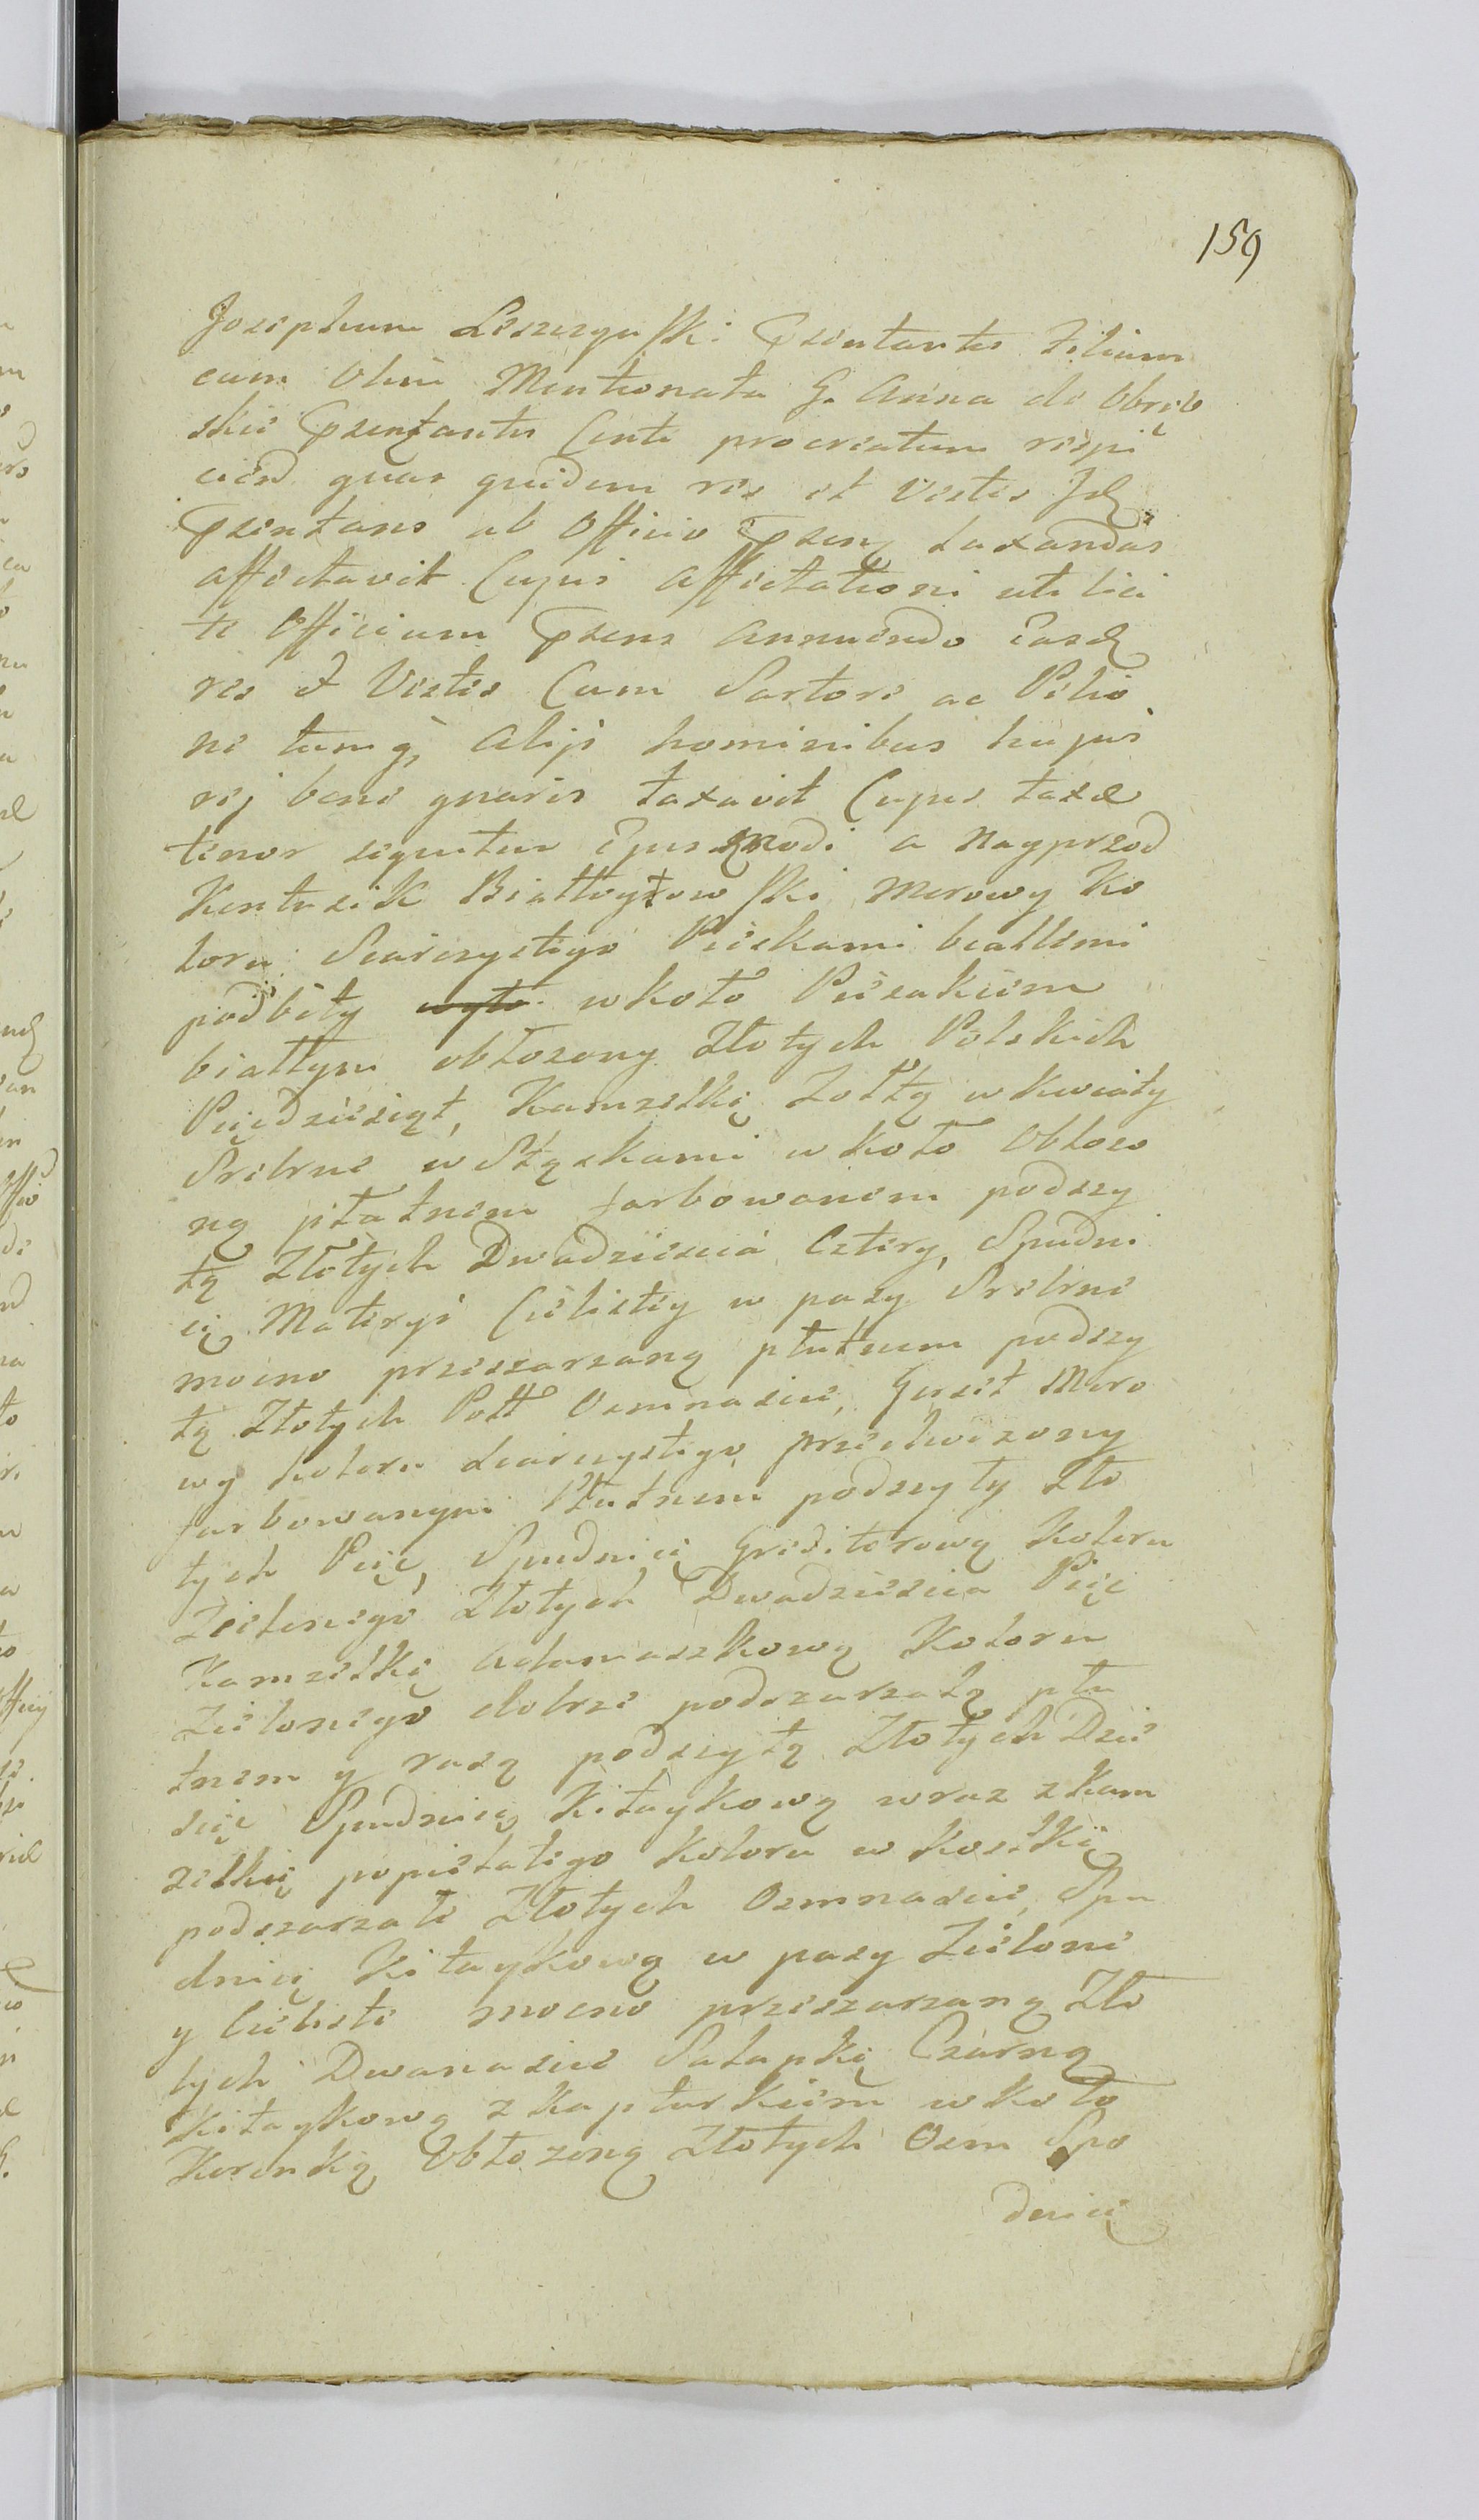 159
Josephum Leszczynski Pzentantis Filium
cum olim Mentionata G. Anna de Obręb
skie Pzentantis Conte procreatum respi
ciend quas quidem res et Vestes Jd
Pzentans ab Officio Pzen taxandas
affectavit Cujus affectationi uti lici
te Officium Pzens annuendo Easd
res et Vestes Cum Sartore ac Pelio
ne tumq, alijs hominibus hujus
rej bene gnaris taxavit Cujus taxæ
tenor sequitur Ejusmodi a Nayprzod
Kontusik Białłogłowski Morowy Ko
loru Siarczystego Pieskami białłemi
podbity wkoło Piesakiem
białłym obłozony Złotych Polskich
Pięcdziesiąt, Kamzelkę Zołtą w kwiaty
Srebrne wstązkami w koło Obłozo
ną płatnem farbowanem podszy
tą Złotych Dwadziescia Cztery, Spudni
cę Materyi Cielistey w pasy Srebrne
mocno przeszarzaną płutnem podszy
tą Złotych Połł Osmnascie, Gurset Moro
wy koloru siarczystego przechodzony
farbowanym Płutnem podszyty Zło
tych Pięc, Spudnicę Greditorową Koloru
Zielonego Złotych Dwadziescia Pięc
Kamzelkę adamaszkową Koloru
Zielonego dobrze podszarzałą płu
tnem y rasą podszytą Złotych Dzie
sięc Spudnicę Kitaykową wraz z kam
zelką popielatego koloru w kostkę
podszarzałe Złotych Osmnascie, Spu
dnicę Kitaykową w pasy Zielone
y Cieliste mocno przeszarzaną Zło
tych Dwanascie Salapkę Czarną
Kitaykową z kapturkiem w koło
Koronką Obłozoną Złotych Osm Spo
dnicę